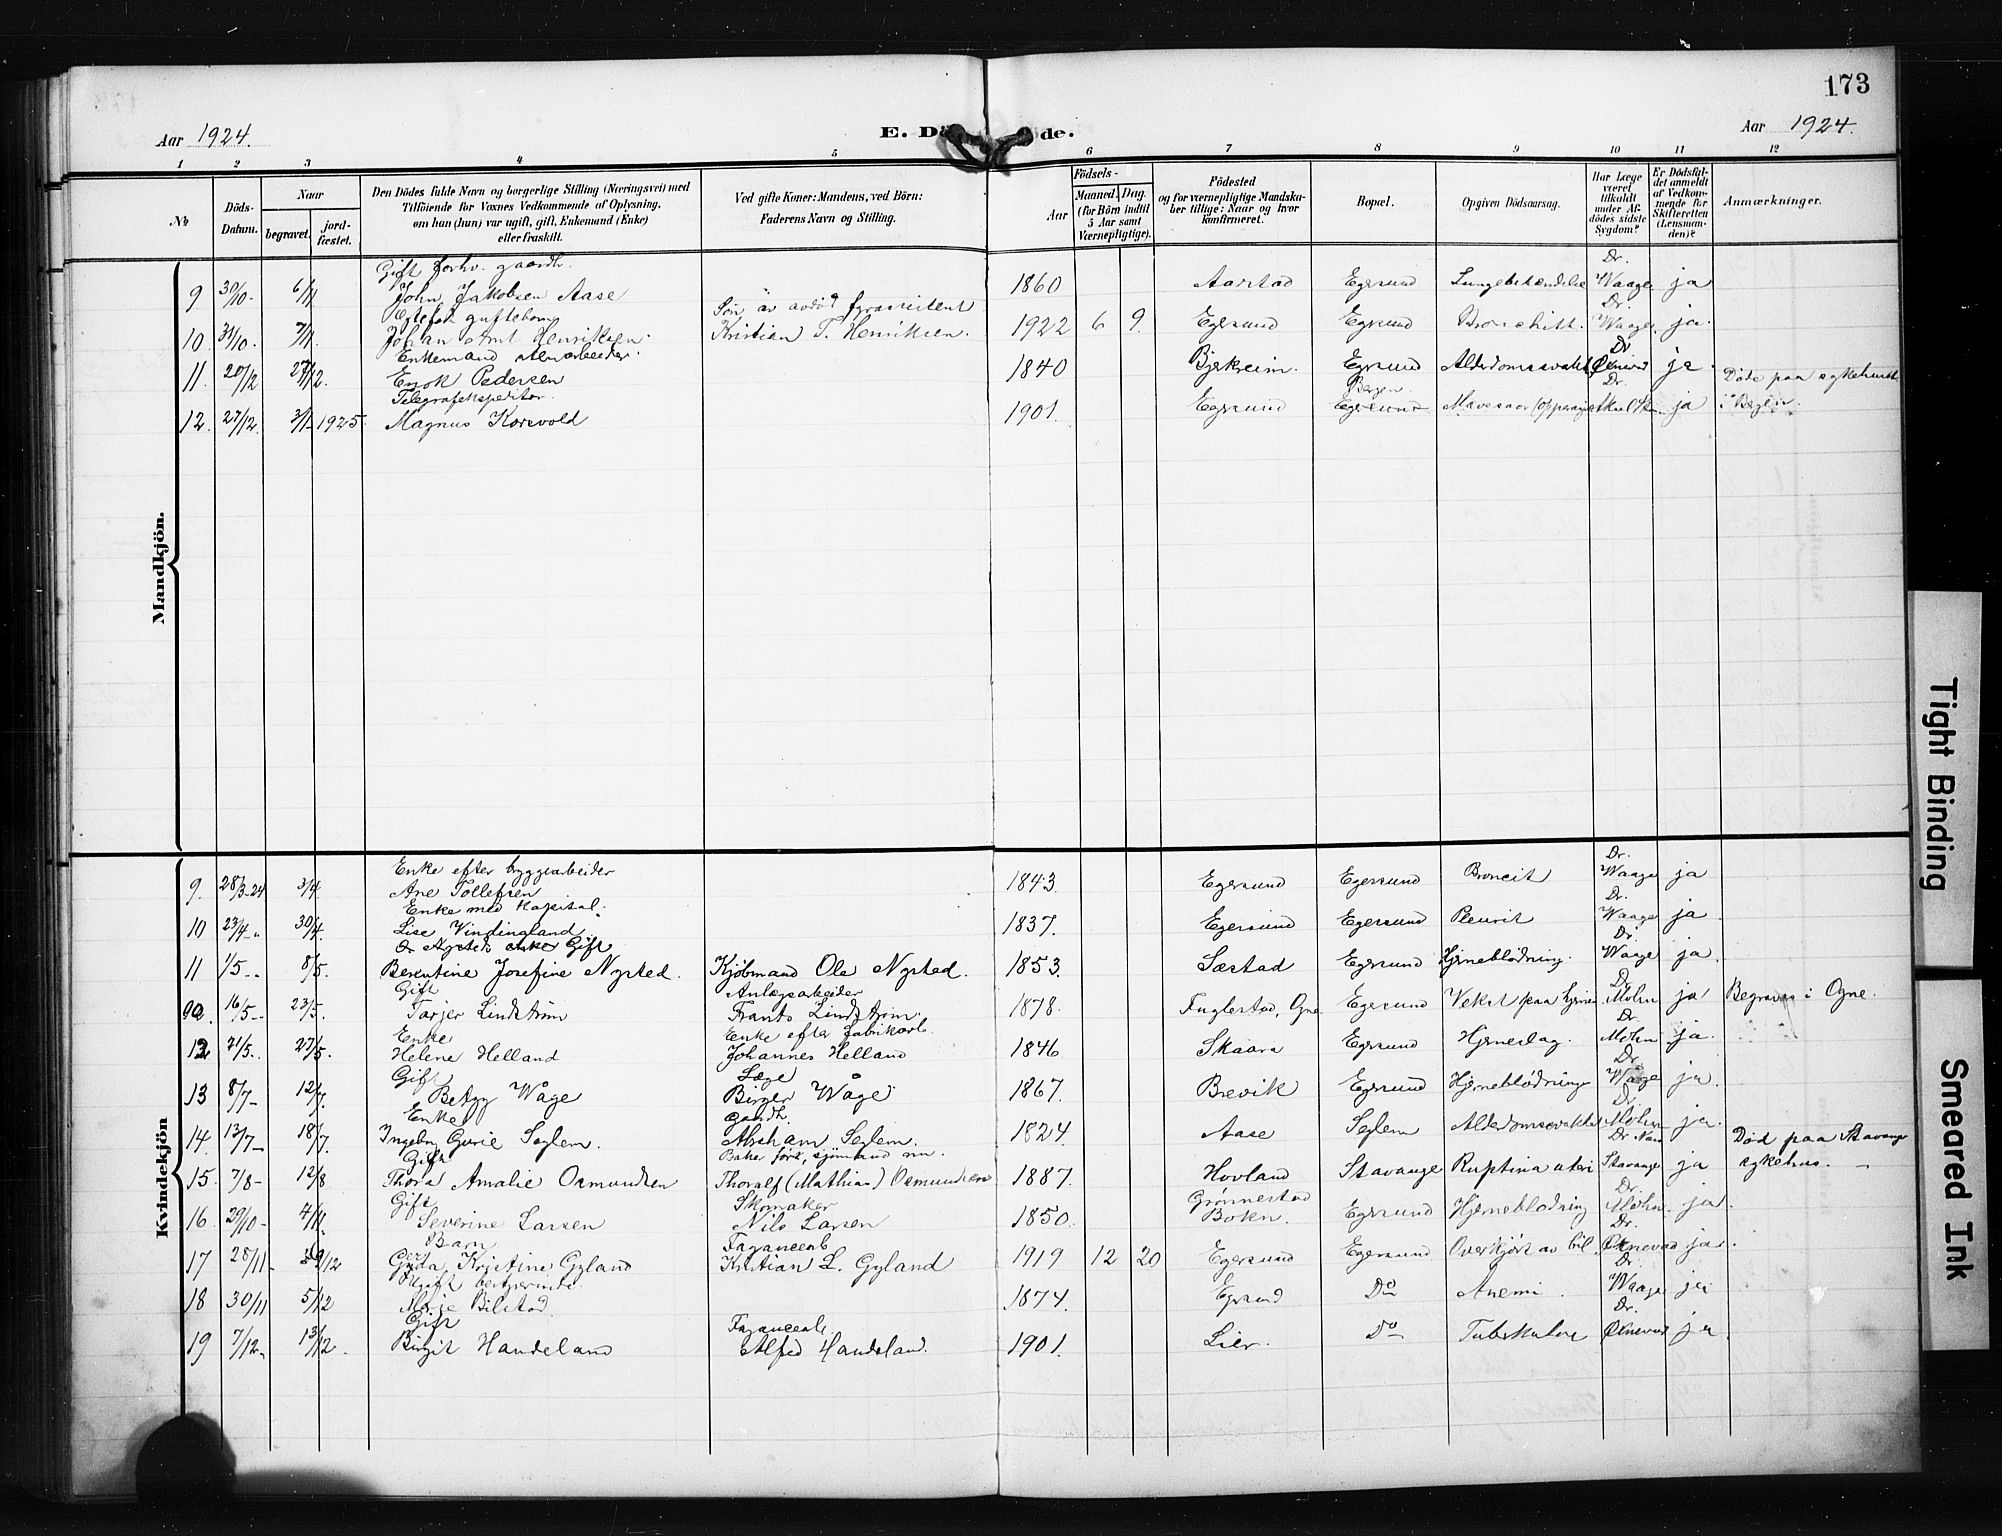 173
Aar 1924.
E. Dö de.
Aar 1924.
1 2 3 4 5 6 7 8 9 10 11 12
No.
Döds-Datum.
Naar
begravet.
jord-fæstet.
Den Dödes fulde Navn og borgerlige Stilling (Næringsvei) med
Tilföiende for Voxnes Vedkommende af Oplysning,
om han (hun) var ugift, gift, Enkemand (Enke)
eller fraskilt.
Ved gifte Koner: Mandens, ved Börn:
Faderens Navn og Stilling.
Födsels-
Aar
Maaned. Dag.
(for Börn indtil
5 Aar samt
Værnepligtige).
Födested
og for værnepligtige Mandska-
ber tillige: Naar og hvor
konfirmeret.
Bopæl.
Opgiven Dödsaarsag.
Har Læge
været
tilkaldt
under Af-
dödes sidste
Sygdom?
Er Dödsfal-
det anmeldt
af Vedkom-
mende for
Skifteretten
(Lensman-
den)?
Anmærkninger.
Mandkjön.
Gift forhv. gaardb. Dr.
9 30/10- 6/11 John Jakobsen Aase 1860 Aarstad Egersund Lungebetændelse Waage ja
Søn av avdød fyrassistent Dr.
10. 31/10. 7/11. Johan Arnt Henriksen. Kristian T. Henriksen. 1922 6 9. Egersund Egersund Bronchitt. Waage. ja.
Enkemand Dr
11. 20/12 27/12. Enok Pedersen 1840 Bjerkreim. Egersund Alderdomssvakhet Øknevad ja.
Telegrafekspeditør. Bergen. Dr. Døde paa sykehuset
12. 27/12. 3/1-1925. Magnus Korsvold 1901. Egersund Egersund Mavesaar ja i Bergen.
Kvindekjön
Enke efter byggearbeider Dr.
9. 28/3-24 3/4. Ane Tollefsen 1843. Egersund Egersund Broncit Waage ja
Enke med kapital. Dr.
10 23/4-" 30/4. Lise Vindingland 1837. Egersund Egersund Pleurit Waage ja
Gift Dr
11 1/5-- 8/5. Berentine Josefine Nysted. Kjöbmand Ole Nysted. 1853. Sæstad Egersund Hjerneblödning. Waage ja.
Gift Anlægsarbeider Dr
16/5-- 23/5. Tarjer Lindström Frants Lindström. 1878. Fuglestad, Ogne Egersund Vekst paa hjernen Mohn ja Begraves i Ogne.
Enke Enke efter fabrikarb. Dr.
12 21/5. 27/5. Helene Helland Johannes Helland 1846. Skaara Egersund Hjerneslag. Mohn ja.
Gift Læge Dr.
13 8/7- 12/7. Betzy Wåge Birger Wåge 1867. Brevik Egersund Hjerneblödning Waage ja.
Enke Gaardb. Dr.
14. 13/7- 18/7. Ingeborg Gurie Seglem. Abraham Seglem. 1824. Aase Seglem Alderdomssvakhet Mohn ja.
Gift Baker förh, sjömand nu. Død paa Stavanger
15. 7/8- 12/8 Thora Amalie Osmundsen Thoralf (Mathias) Osmundsen 1887. Hovland Stavanger Ruptina uteri Stavanger ja sykehus.
Gift Skomaker Grønnestad Dr.
16 29/10- 4/11. Severine Larsen Nils Larsen 1850. Bokn. Egersund Hjerneblodning Mohn. ja.
Barn Fayancearb Dr.
17 28/11- Gyda Kristine Gyland Kristian L. Gyland 1919 12 20 Egersund Egersund Overkjørt av bil Øknevad ja.
Ugift bestyrerinde. Dr.
18 30/11 5/12 Marie Bilstad 1874. Egersund Do Anemi. Waage ja
Gift Fayancearb Dr.
19 7/12- 13/12. Birgit Handeland Alfred Handeland. 1901. Lier. Do Tuberkulose Øknevad ja
Tight Binding
Smeared Ink